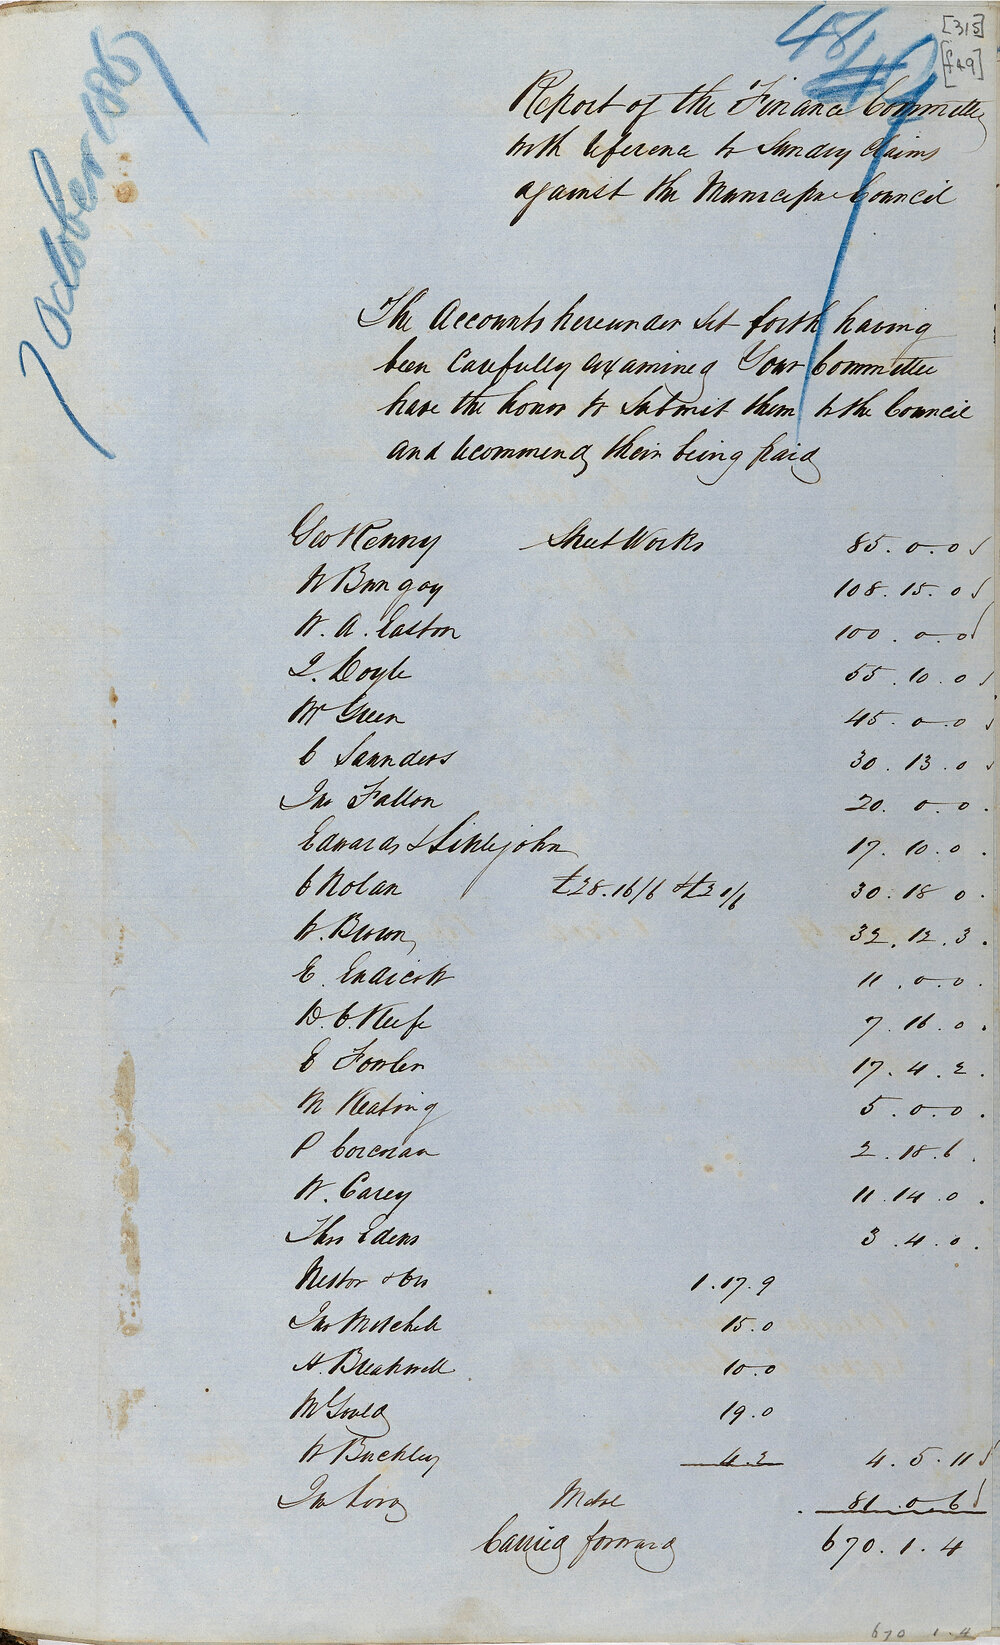 [315]
[f49]
48/49
7 October 185
Report of the Finance Committee
with reference to Sundry Claims
against the Municipal Council
The Accounts hereunder set forth having
been Carefully examined Your Committee
have the honor to Submit them to the Council
and recommend their being paid
Geo Kenny Street Works 85.0.0
W Bungay 108.15.0
W. A. Easton 100.0.0
Doyle 55.10.0
Green 45.0.0
C Saunders 30.13.0
Jno Fallon 20.0.0
Edwards & Littlejohn 17.10.0
C Nolan £28.16/6 & £2 1/6 30.18.0
W. Brown 32.12.3
E. Endicott 11.0.0
D. C. Keefe 7.16.0
E Fowler 17.4.2
M Keating 5.0.0
P Corcoran 2.18.6
W. Carey 11.14.0
Thos Edens 3.4.0
Nestor & Co 1.17.9
Jno Mitchell 15.0
H. Breakwell 10.0
McGould 19.0
W Buckley 4.2 4.5.11
Jno Metal 81.0.6
Carried forward 670.1.4
670 1.4